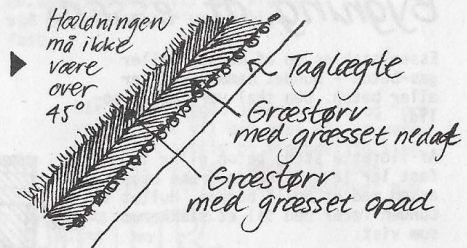 Hældningen
må ikke
være
over
45°
Taglægte
Græstørv
med græsset nedad
Græstørv
med græsset opad